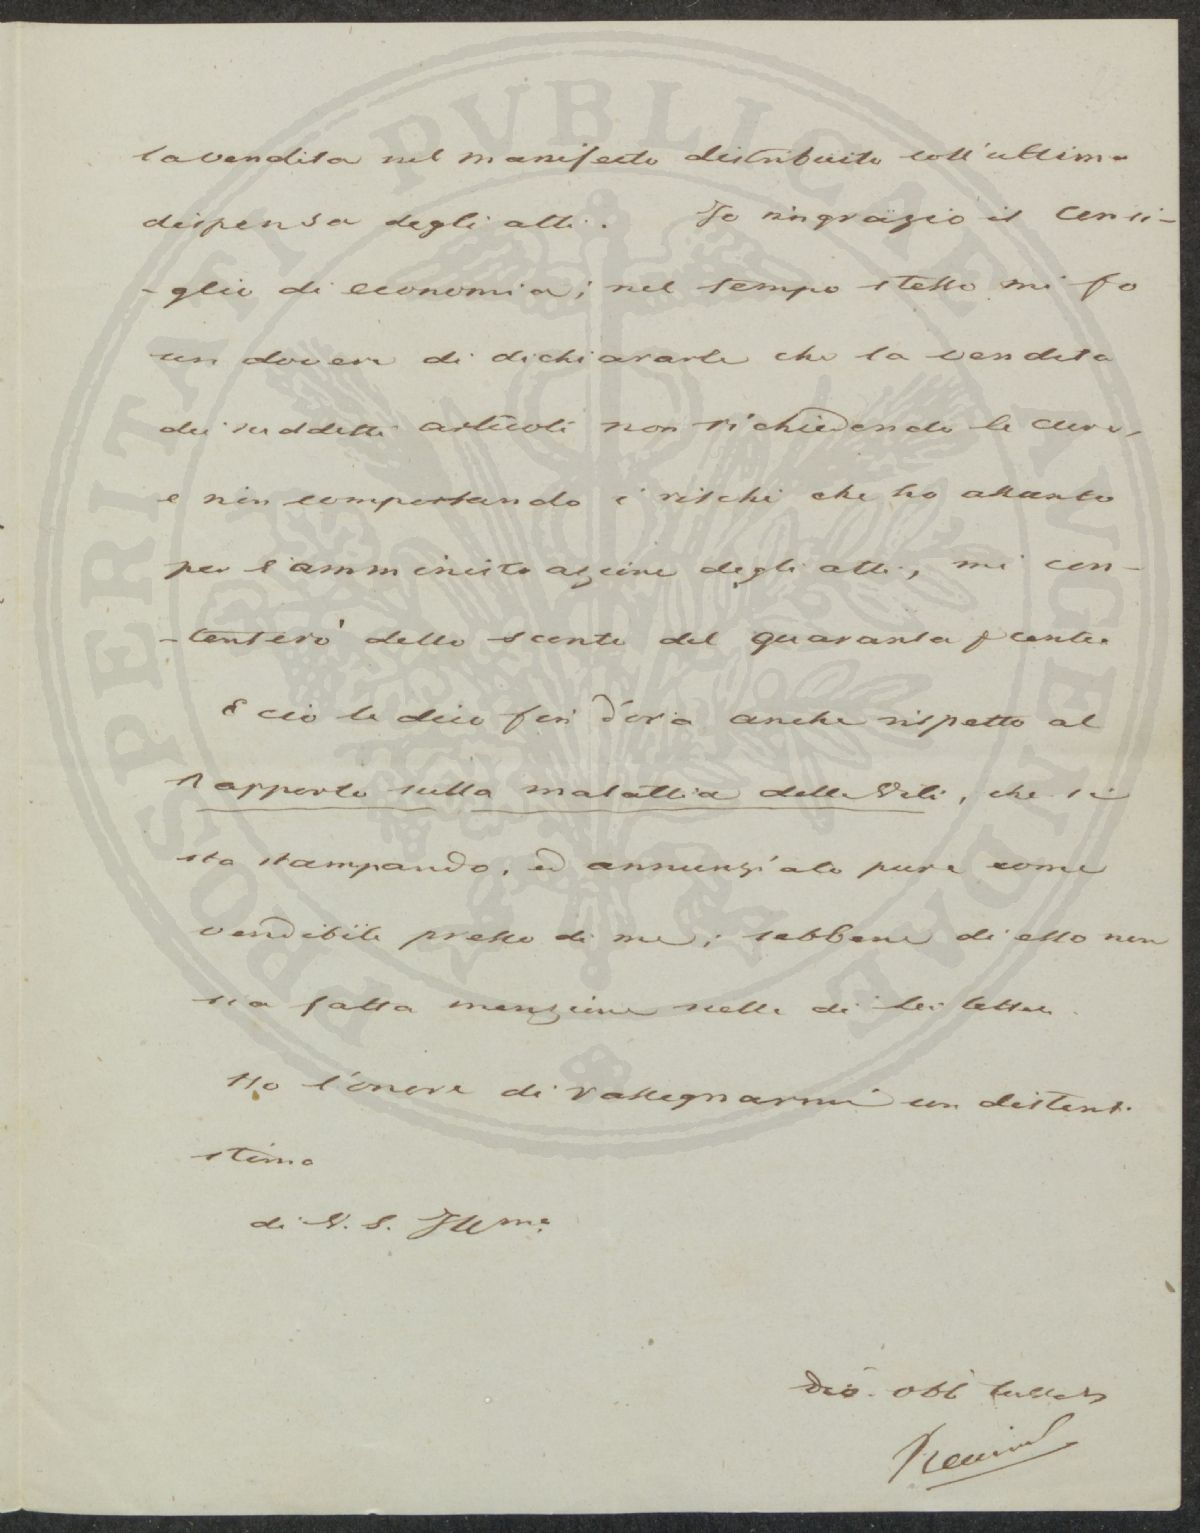 la vendita nel manifesto distribuito coll'ultima
dispensa degli atti. Io ringrazio il Consi-
-glio di economia; nel tempo stesso mi fo
un dovere di dichiararle che la vendita
dei suddetti articoli non richiedendo le cure,
e non comportando i rischi che ho assunto
per l'amministrazione degli atti, mi con-
-tenterò dello sconto del quaranta p cento.
E ciò le dico fin d'ora anche rispetto al
Rapporto sulla malattia delle Viti, che si
sta stampando, ed annunziato pure come
vendibile presso di me; sebbene di esso non
sia fatta menzione nella di Lei lettera.
Ho l'onore di rassegnarmi con distint.
stima
di V. S. Ill.ma
obb
PROSPERITATI PVBLICAE AVGENDAE